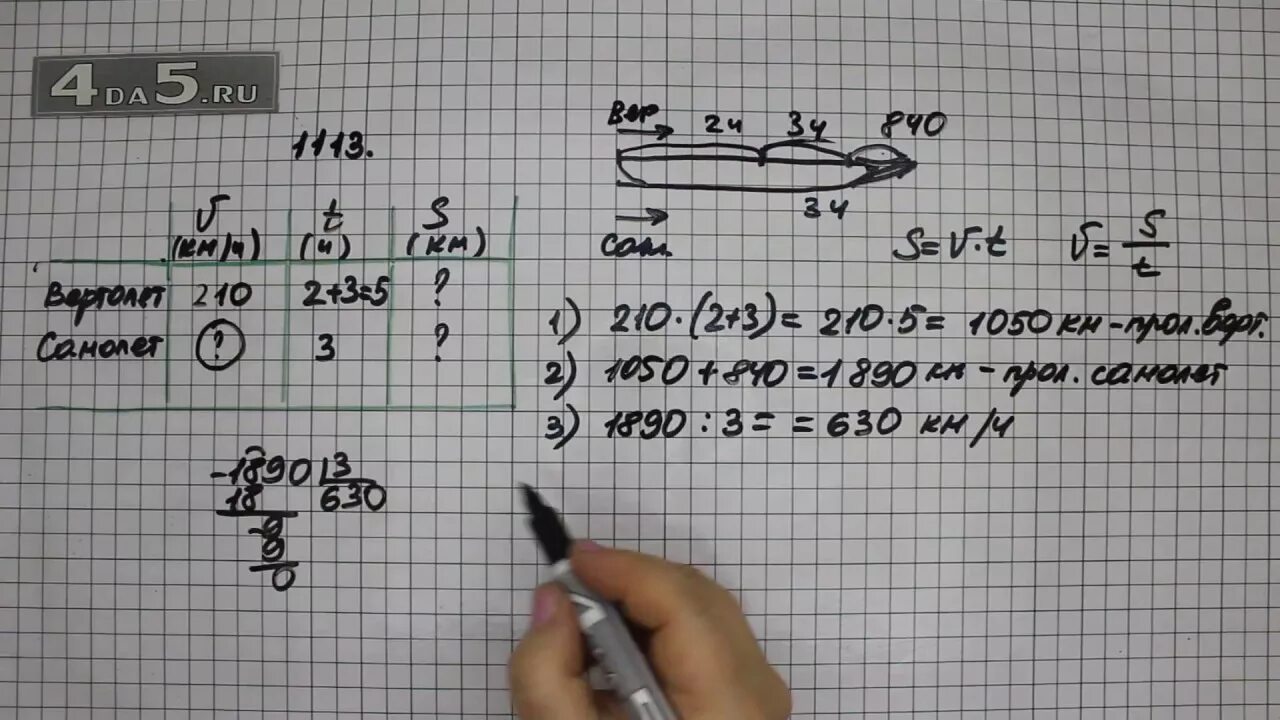 4DA5.RU
1113.
V (км/ч) t (ч) S (км)
Вертолет 210 2+3=5 ?
Самолет ? 3 ?
Вер 2ч 3ч 840
3ч
Сам.
S=V·t V=S/t
1) 210·(2+3)=210·5=1050 км-прол.верт.
2) 1050+840=1890 км-прол. самолет
3) 1890:3= =630 км/ч
-1890 3
18 630
-9
9
0